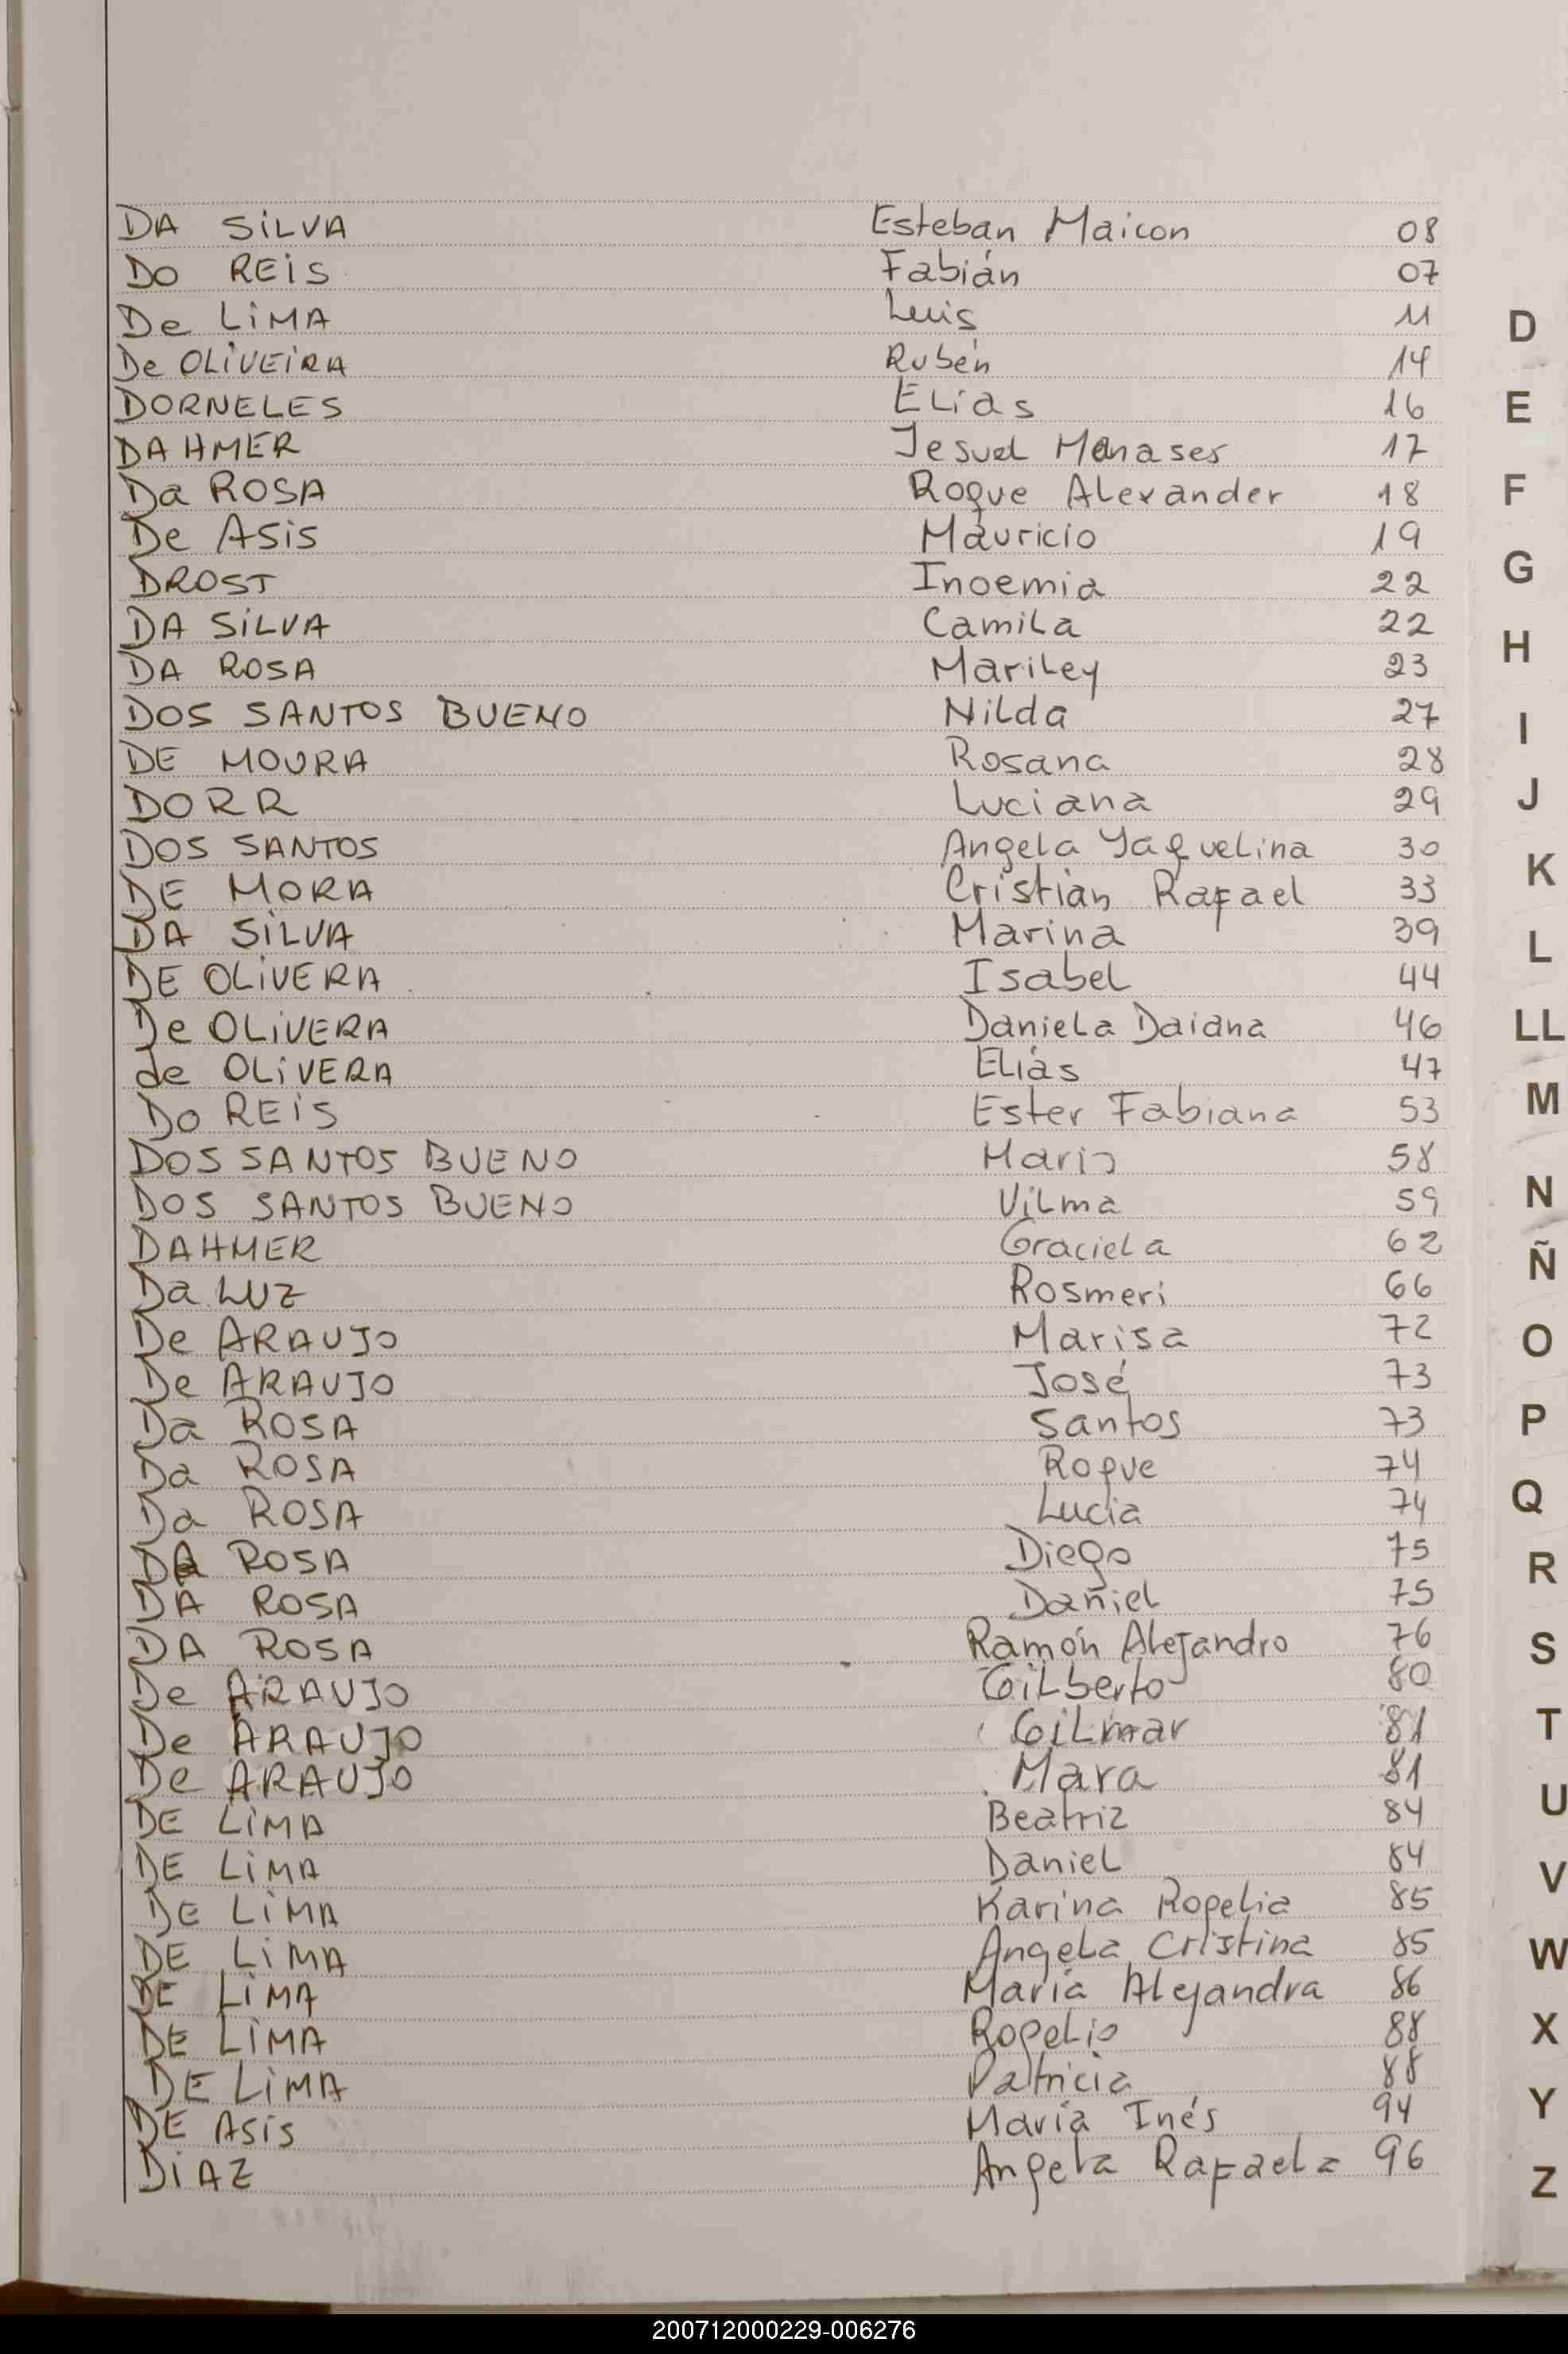 DA SILVA Esteban Maicon 08
DO REIS Fabián 07
De LIMA Luis 11
De OLIVEIRA Rubén 14
DORNELES Elías 16
DAHMER Jesuel Manases 17
Da ROSA Roque Alexander 18
De Asis Mauricio 19
DROST Inoemia 22
DA SILVA Camila 22
DA ROSA Mariley 23
DOS SANTOS BUENO Nilda 27
DE MOURA Rosana 28
DORR Luciana 29
DOS SANTOS Angela Yaquelina 30
DE MORA Cristian Rafael 33
DA SILVA Marina 39
DE OLIVERA Isabel 44
De OLIVERA Daniela Daiana 46
de OLIVERA Elías 47
DO REIS Ester Fabiana 53
DOS SANTOS BUENO Mario 58
DOS SANTOS BUENO Vilma 59
DAHMER Graciela 62
Da LUZ Rosmeri 66
De ARAUJO Marisa 72
De ARAUJO José 73
Da ROSA Santos 73
Da ROSA Roque 74
Da ROSA Lucía 74
DA ROSA Diego 75
DA ROSA Daniel 75
DA ROSA Ramón Alejandro 76
De ARAUJO Gilberto 80
De ARAUJO Gilmar 81
De ARAUJO Mara 81
DE LIMA Beatriz 84
DE LIMA Daniel 84
DE LIMA Karina Rogelia 85
DE LIMA Angela Cristina 85
DE LIMA María Alejandra 86
DE LIMA Rogelio 88
DE LIMA Patricia 88
DE Asis María Inés 94
DIAZ Angela Rafaela 96
D
E
F
G
H
I
J
K
L
LL
M
N
Ñ
O
P
Q
R
S
T
U
V
W
X
Y
Z
200712000229-006276